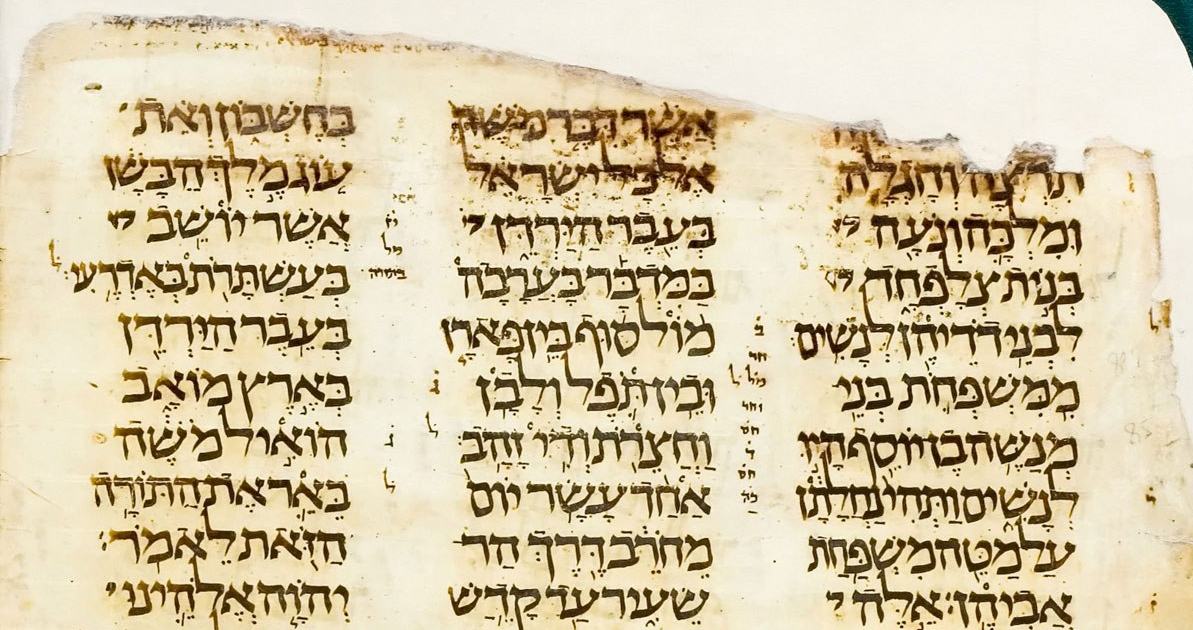 תִרְצָה וְחָגְלָה
וּמִלְכָּה וְנֹעָה
בְּנוֹת צְלָפְחָד
לִבְנֵי דֹדֵיהֶן לְנָשִׁים
מִמִּשְׁפְּחֹת בְּנֵי
מְנַשֶּׁה בֶן יוֹסֵף הָיוּ
לְנָשִׁים וַתְּהִי נַחֲלָתָן
עַל מַטֵּה מִשְׁפַּחַת
אֲבִיהֶן׃ אֵלֶּה
אֲשֶׁר דִּבֶּר מֹשֶׁה
אֶל כָּל יִשְׂרָאֵל
בְּעֵבֶר הַיַּרְדֵּן
בַּמִּדְבָּר בָּעֲרָבָה
מוֹל סוּף בֵּין פָּארָן
וּבֵין תֹּפֶל וְלָבָן
וַחֲצֵרֹת וְדִי זָהָב
אַחַד עָשָׂר יוֹם
מֵחֹרֵב דֶּרֶךְ הַר
שֵׂעִיר עַד קָדֵשׁ
בְּחֶשְׁבּוֹן וְאֵת
עוֹג מֶלֶךְ הַבָּשָׁן
אֲשֶׁר יוֹשֵׁב
בְּעַשְׁתָּרֹת בְּאֶדְרֶעִי
בְּעֵבֶר הַיַּרְדֵּן
בְּאֶרֶץ מוֹאָב
הוֹאִיל מֹשֶׁה
בֵּאֵר אֶת הַתּוֹרָה
הַזֹּאת לֵאמֹר
יְהוָה אֱלֹהֵינוּ